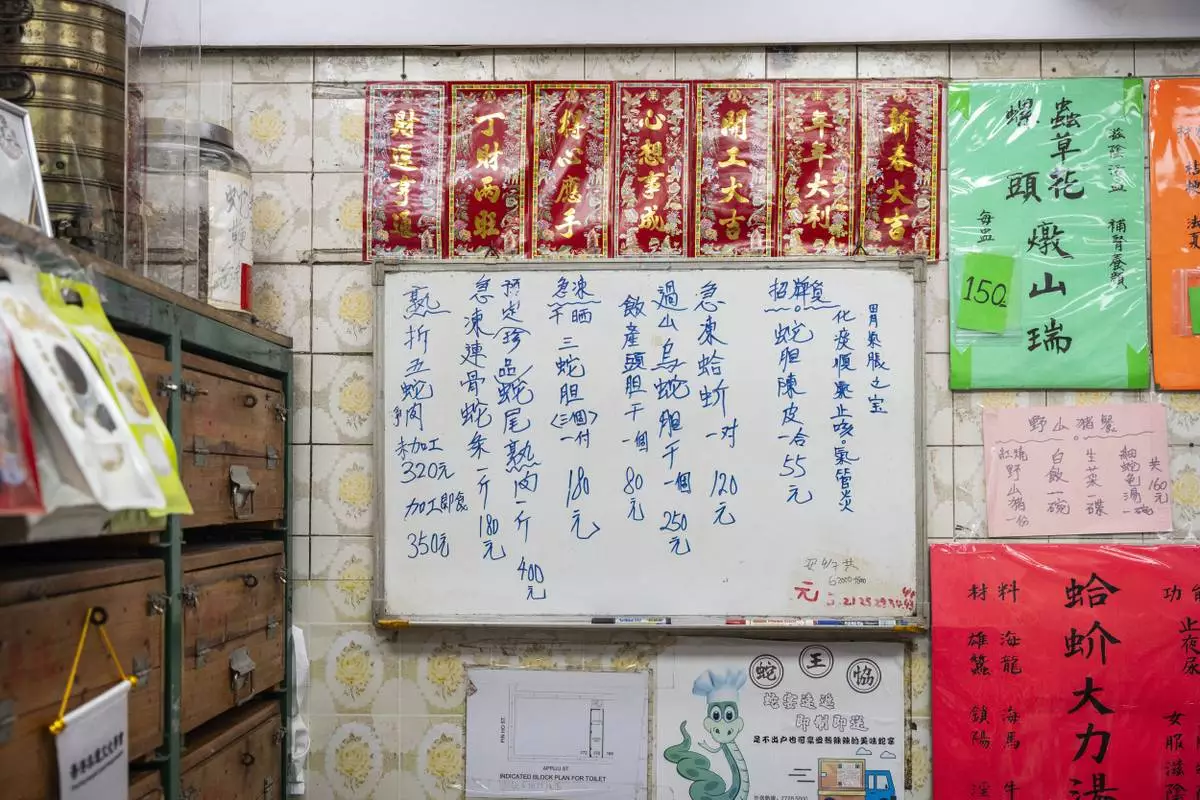 新春大吉
年年大利
開工大吉
心想事成
得心應手
丁財兩旺
財運亨通
胃氣脹之宝
化痰順氣止咳。氣管炎
蛇胆陳皮一合55元
急凍蛤蚧一对120元
過山烏蛇胆干一個250元
飯産頭胆干一個80元
急凍
干晒
三蛇胆
〈三個〉
一付
180元
預定珍品蛇尾熟肉一斤400元
急凍連骨蛇条一斤180元
熟折五蛇肉
未加工
320元
加工即食
350元
元
補腎養顏
蟲草花
螺頭
燉山瑞
每盅
150
野山猪餐
共160元
細蛇羹湯一碗
生菜一碟
白飯一碗
紅燒野山猪一份
功能
止夜尿
蛤蚧大力湯
材料
海龍
海馬
雄蠶
鎖陽
蛇王協
蛇宴速遞
即制即送
足不出户也可享受熱辣辣的美味蛇宴
PEI HO ST
APPLIU ST
INDICATED BLOCK PLAN FOR TOILET